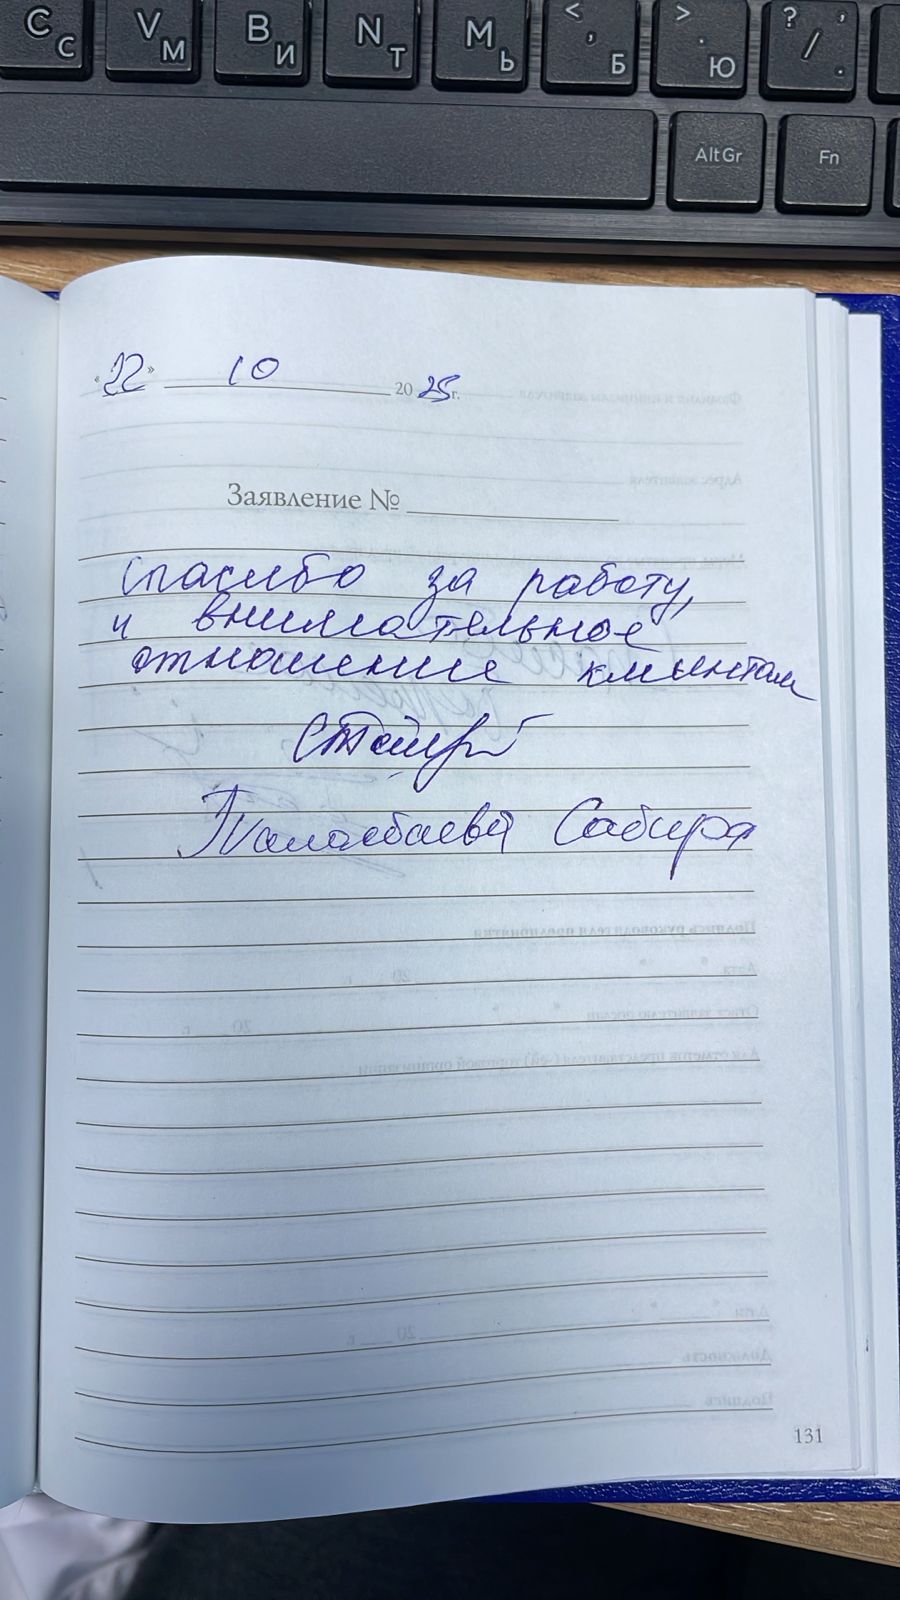 C С
V М
В И
N Т
М Ь
< , Б
> . Ю
? / , .
AltGr
Fn
«22» 10 2025г.
Заявление №
Спасибо за работу,
и внимательное
отношение клиентам
Сабира
131